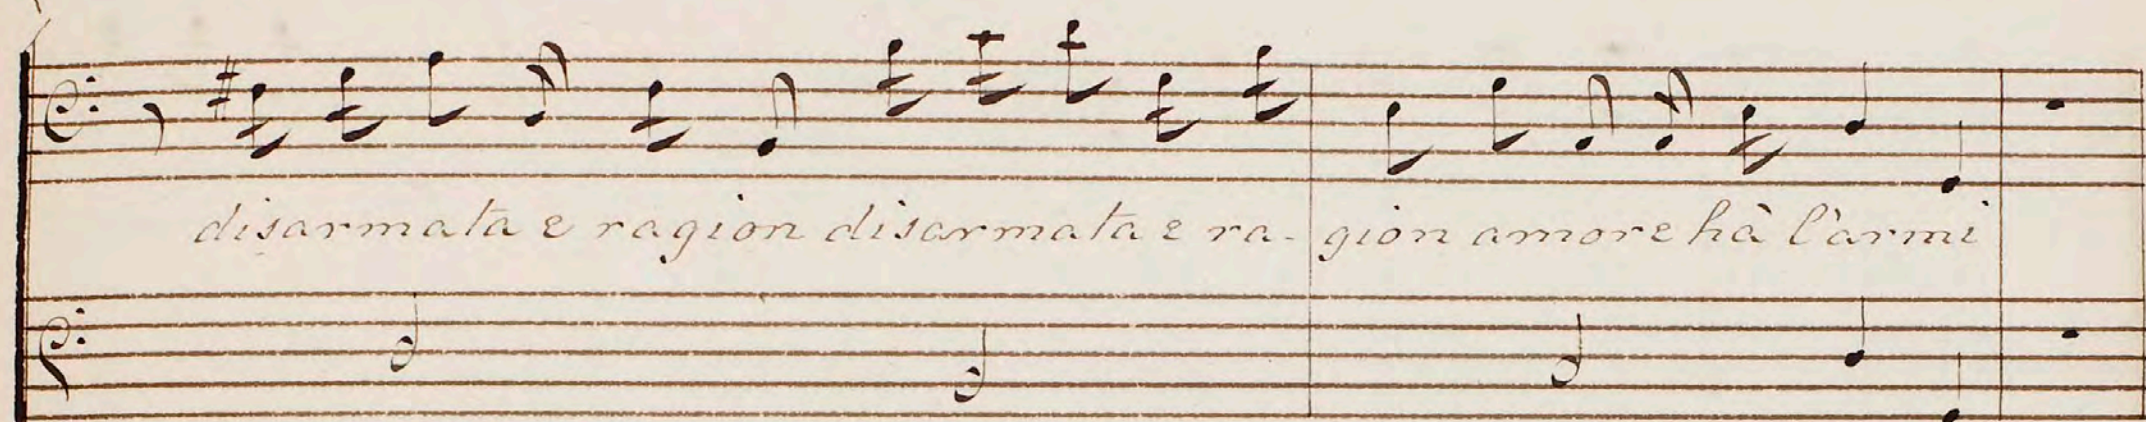 disarmata e ragion disarmata e ra- gion amore hà l'àrmi